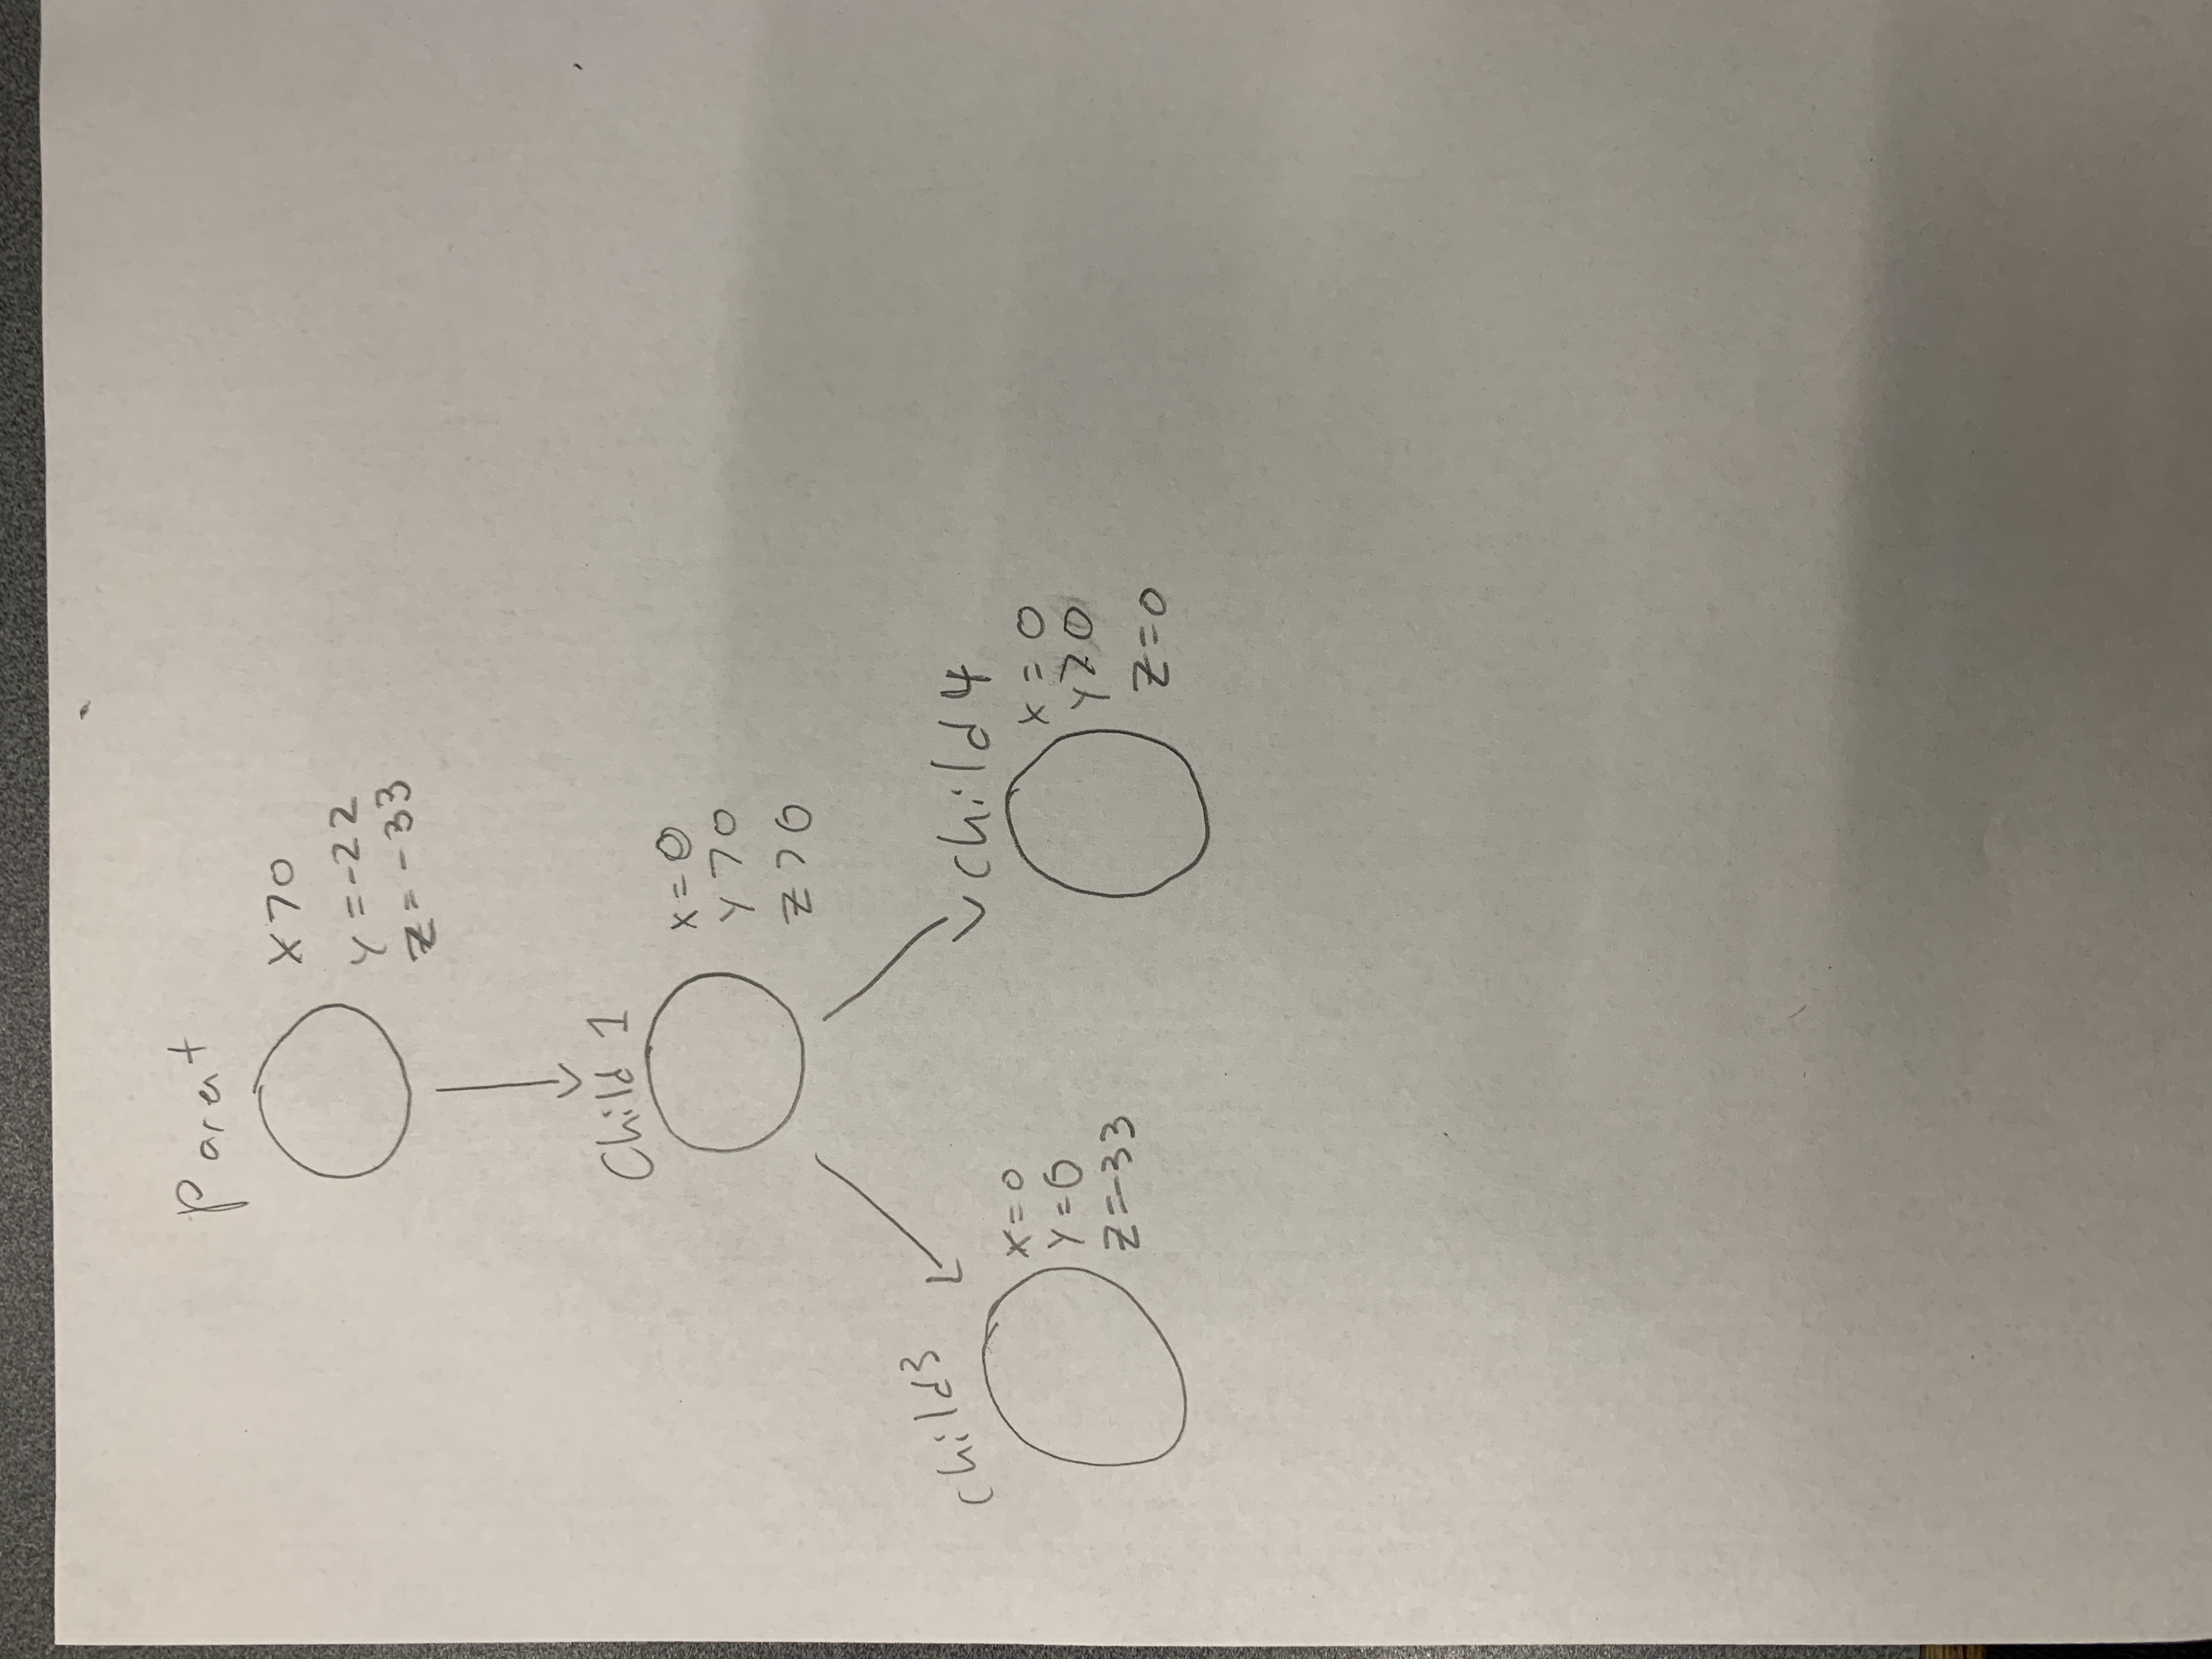 Parent
X>0
y=-22
z=-33
Child 1
x=0
y>0
z>0
child3
x=0
y=0
z=-33
child4
x=0
y>0
z=0